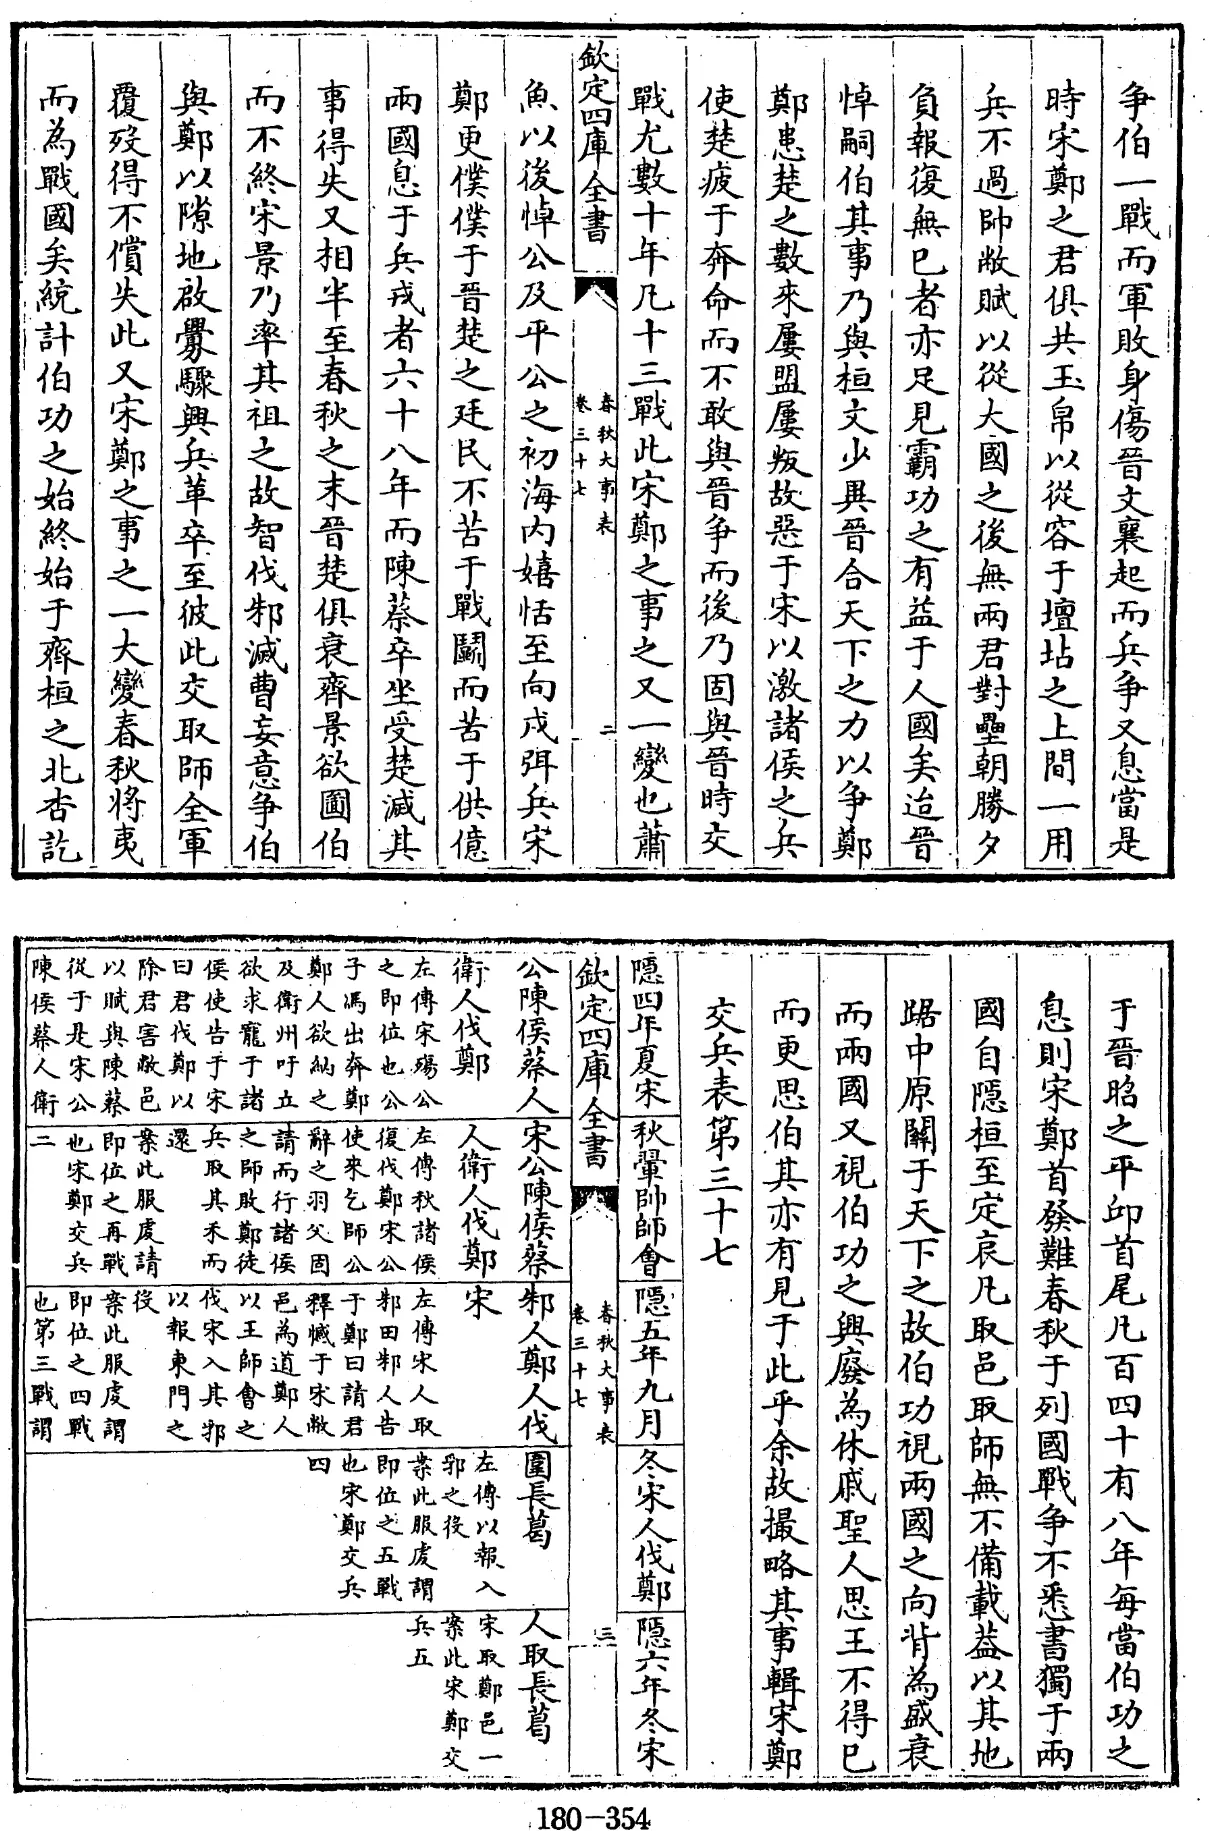 争伯一戰而軍敗身傷晉文襄起而兵争又息當是
時宋鄭之君俱共玉帛以從容于壇坫之上間一用
兵不過帥敝賦以從大國之後無兩君對壘朝勝夕
負報復無已者亦足見霸功之有益于人國矣迨晉
悼嗣伯其事乃與桓文少異晉合天下之力以争鄭
鄭患楚之數來屢盟屢叛故惡于宋以激諸侯之兵
使楚疲于奔命而不敢與晉争而後乃固與晉時交
戰尤數十年凡十三戰此宋鄭之事之又一變也蕭
欽定四庫全書
春秋大事表
卷三十七
二
魚以後悼公及平公之初海内嬉恬至向戌弭兵宋
鄭更僕僕于晉楚之廷民不苦于戰鬭而苦于供億
兩國息于兵戎者六十八年而陳蔡卒坐受楚滅其
事得失又相半至春秋之末晉楚俱衰齊景欲圖伯
而不終宋景乃率其祖之故智伐邾滅曹妄意争伯
與鄭以隙地啟釁驟興兵革卒至彼此交取師全軍
覆殁得不償失此又宋鄭之事之一大變春秋将夷
而為戰國矣統計伯功之始終始于齊桓之北杏訖
于晉昭之平邱首尾凡百四十有八年每當伯功之
息則宋鄭首發難春秋于列國戰争不悉書獨于兩
國自隱桓至定哀凡取邑取師無不備載蓋以其地
踞中原關于天下之故伯功視兩國之向背為盛衰
而兩國又視伯功之興廢為休戚聖人思王不得已
而更思伯其亦有見于此乎余故撮略其事輯宋鄭
交兵表第三十七
隱四年夏宋
公陳侯蔡人
衛人伐鄭
左傳宋殤公
之即位也公
子馮出奔鄭
鄭人欲納之
及衛州吁立
欲求寵于諸
侯使告于宋
曰君伐鄭以
除君害敝邑
以賦與陳蔡
從于是宋公
陳侯蔡人衛
秋翬帥師會
宋公陳侯蔡
人衛人伐鄭
左傳秋諸侯
復伐鄭宋公
使來乞師公
辭之羽父固
請而行諸侯
之師敗鄭徒
兵取其禾而
還
案此服虔謂
即位之再戰
也宋鄭交兵
二
隱五年九月
邾人鄭人伐
宋
左傳宋人取
邾田邾人告
于鄭曰請君
釋憾于宋敝
邑為道鄭人
以王師會之
伐宋入其郛
以報東門之
役
案此服虔謂
即位之四戰
也第三戰謂
冬宋人伐鄭
圍長葛
左傳以報入
郛之役
案此服虔謂
即位之五戰
也宋鄭交兵
四
隱六年冬宋
人取長葛
宋取鄭邑一
案此宋鄭交
兵五
欽定四庫全書
春秋大事表
卷三十七
三
180-354